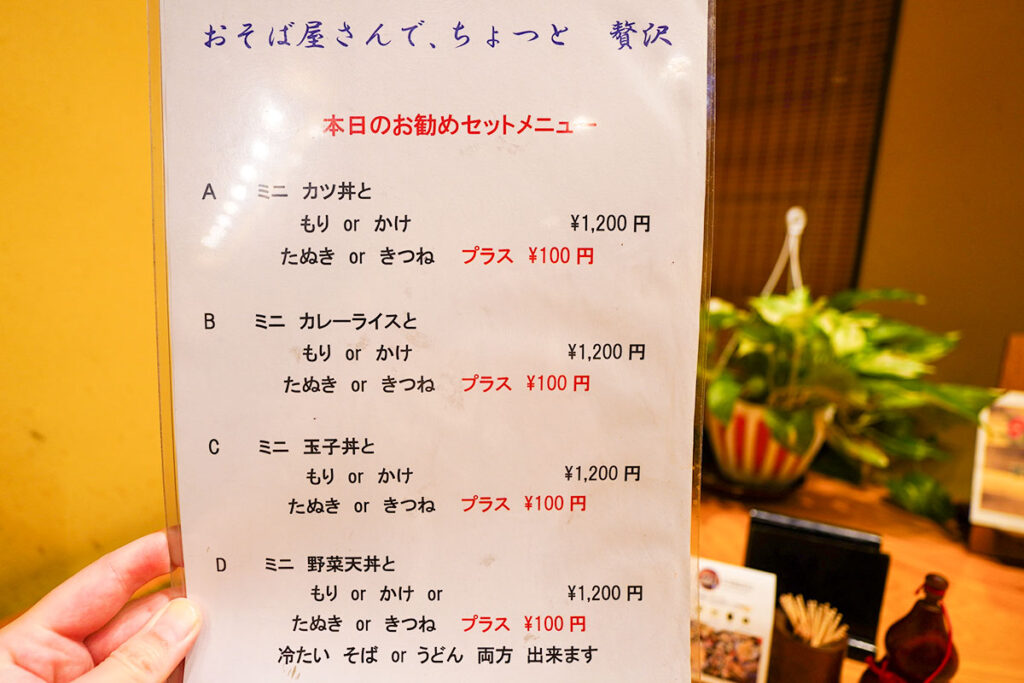 おそば屋さんで、ちょっと 贅沢
本日のお勧めセットメニュー
A ミニ カツ丼と
もり or かけ ¥1,200 円
たぬき or きつね プラス ¥100 円
B ミニ カレーライスと
もり or かけ ¥1,200 円
たぬき or きつね プラス ¥100 円
C ミニ 玉子丼と
もり or かけ ¥1,200 円
たぬき or きつね プラス ¥100 円
D ミニ 野菜天丼と
もり or かけ or ¥1,200 円
たぬき or きつね プラス ¥100 円
冷たい そば or うどん 両方 出来ます